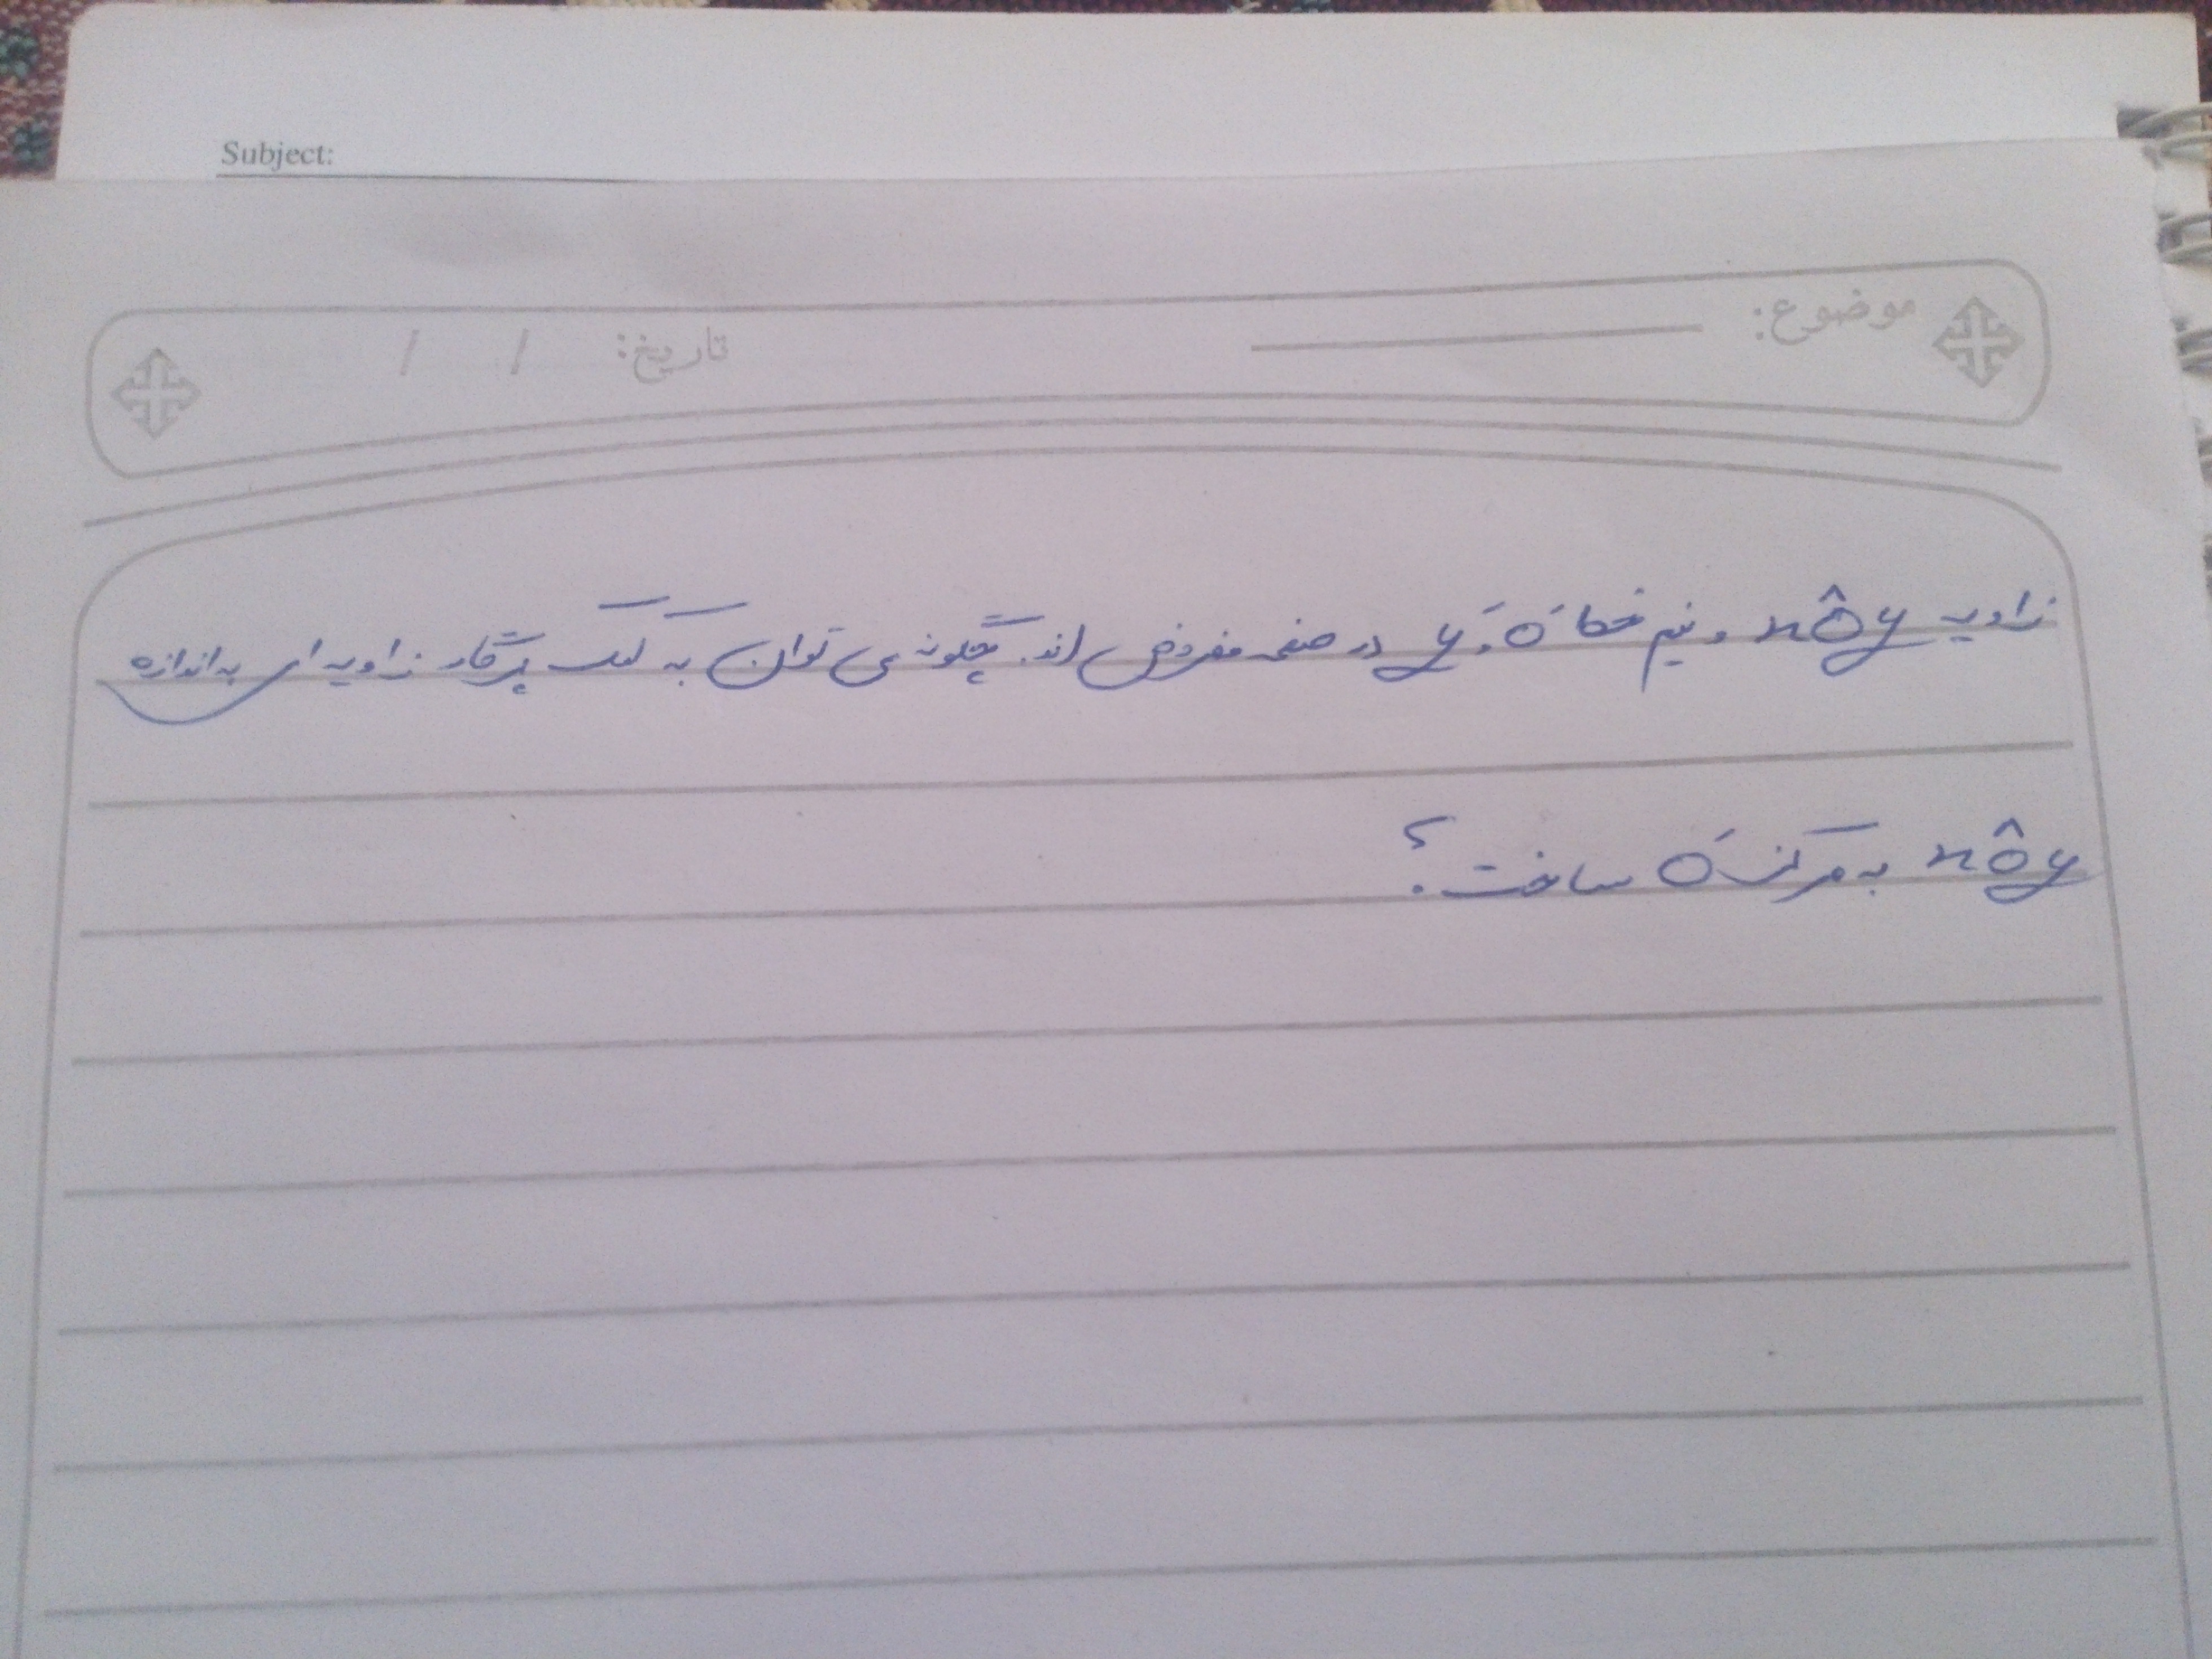 Subject:
موضوع: تاریخ: / /
زاویه xÔy و نیم خط O′y′ در صفحه مفروض اند. چگونه می توان به کمک پرگار زاویه ای به اندازه
xÔy به مرکز O′ ساخت؟